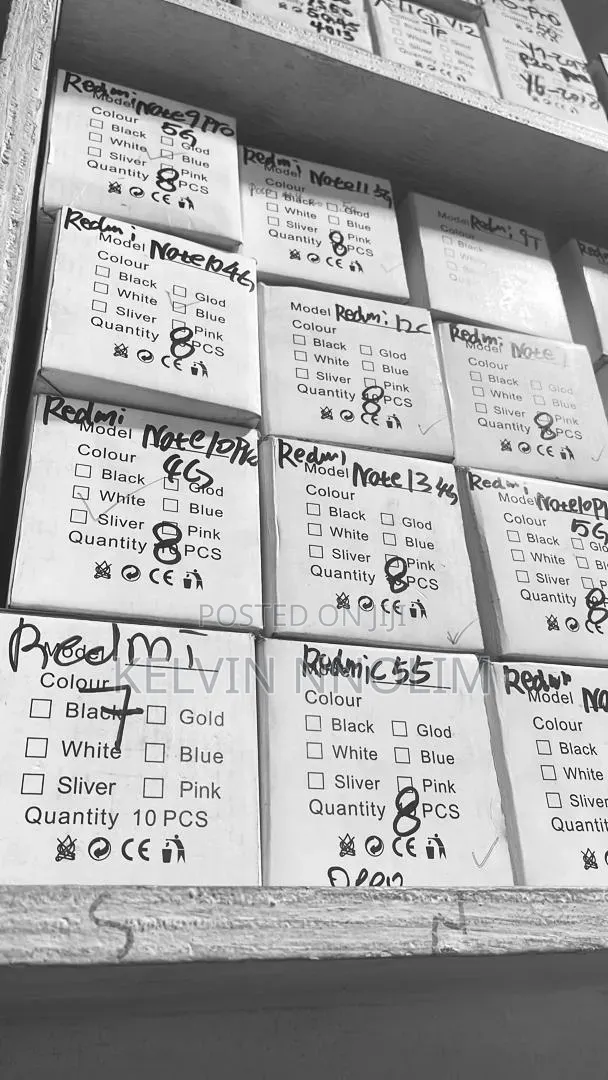 4013
Y6-2018
Redmi
Model Note 9 Pro
5G
Colour
Black Glod
White Blue
Sliver Pink
Quantity 8 PCS
Redmi
Model Note 11 5G
Colour
Black Glod
White Blue
Sliver Pink
Quantity 8 PCS
CE
Model Redmi 9T
Colour
Redmi
Model Note 10 4G
Colour
Black Glod
White Blue
Sliver Pink
Quantity 8 PCS
CE
Model Redmi 12C
Colour
Black Glod
White Blue
Sliver Pink
Quantity 8 PCS
CE
Redmi
Model Note
Colour
Black Glod
White Blue
Sliver Pink
Quantity 8 PCS
CE
Redmi
Model Note 10 Pro
4G
Colour
Black Glod
White Blue
Sliver Pink
Quantity 8 PCS
CE
Redmi
Model Note 13 4G
Colour
Black Glod
White Blue
Sliver Pink
Quantity 8 PCS
CE
Redmi
Model Note 10 P
5G
Colour
Black
White
Sliver
Quantity 8
CE
POSTED ON JIJI
KELVIN NNOLIM
Redmi
Model
7
Colour
Black Gold
White Blue
Sliver Pink
Quantity 10 PCS
CE
Redmi C55
Model
Colour
Black Glod
White Blue
Sliver Pink
Quantity 8 PCS
CE
Redmi
Model No
Colour
Black
White
Sliver
Quantit